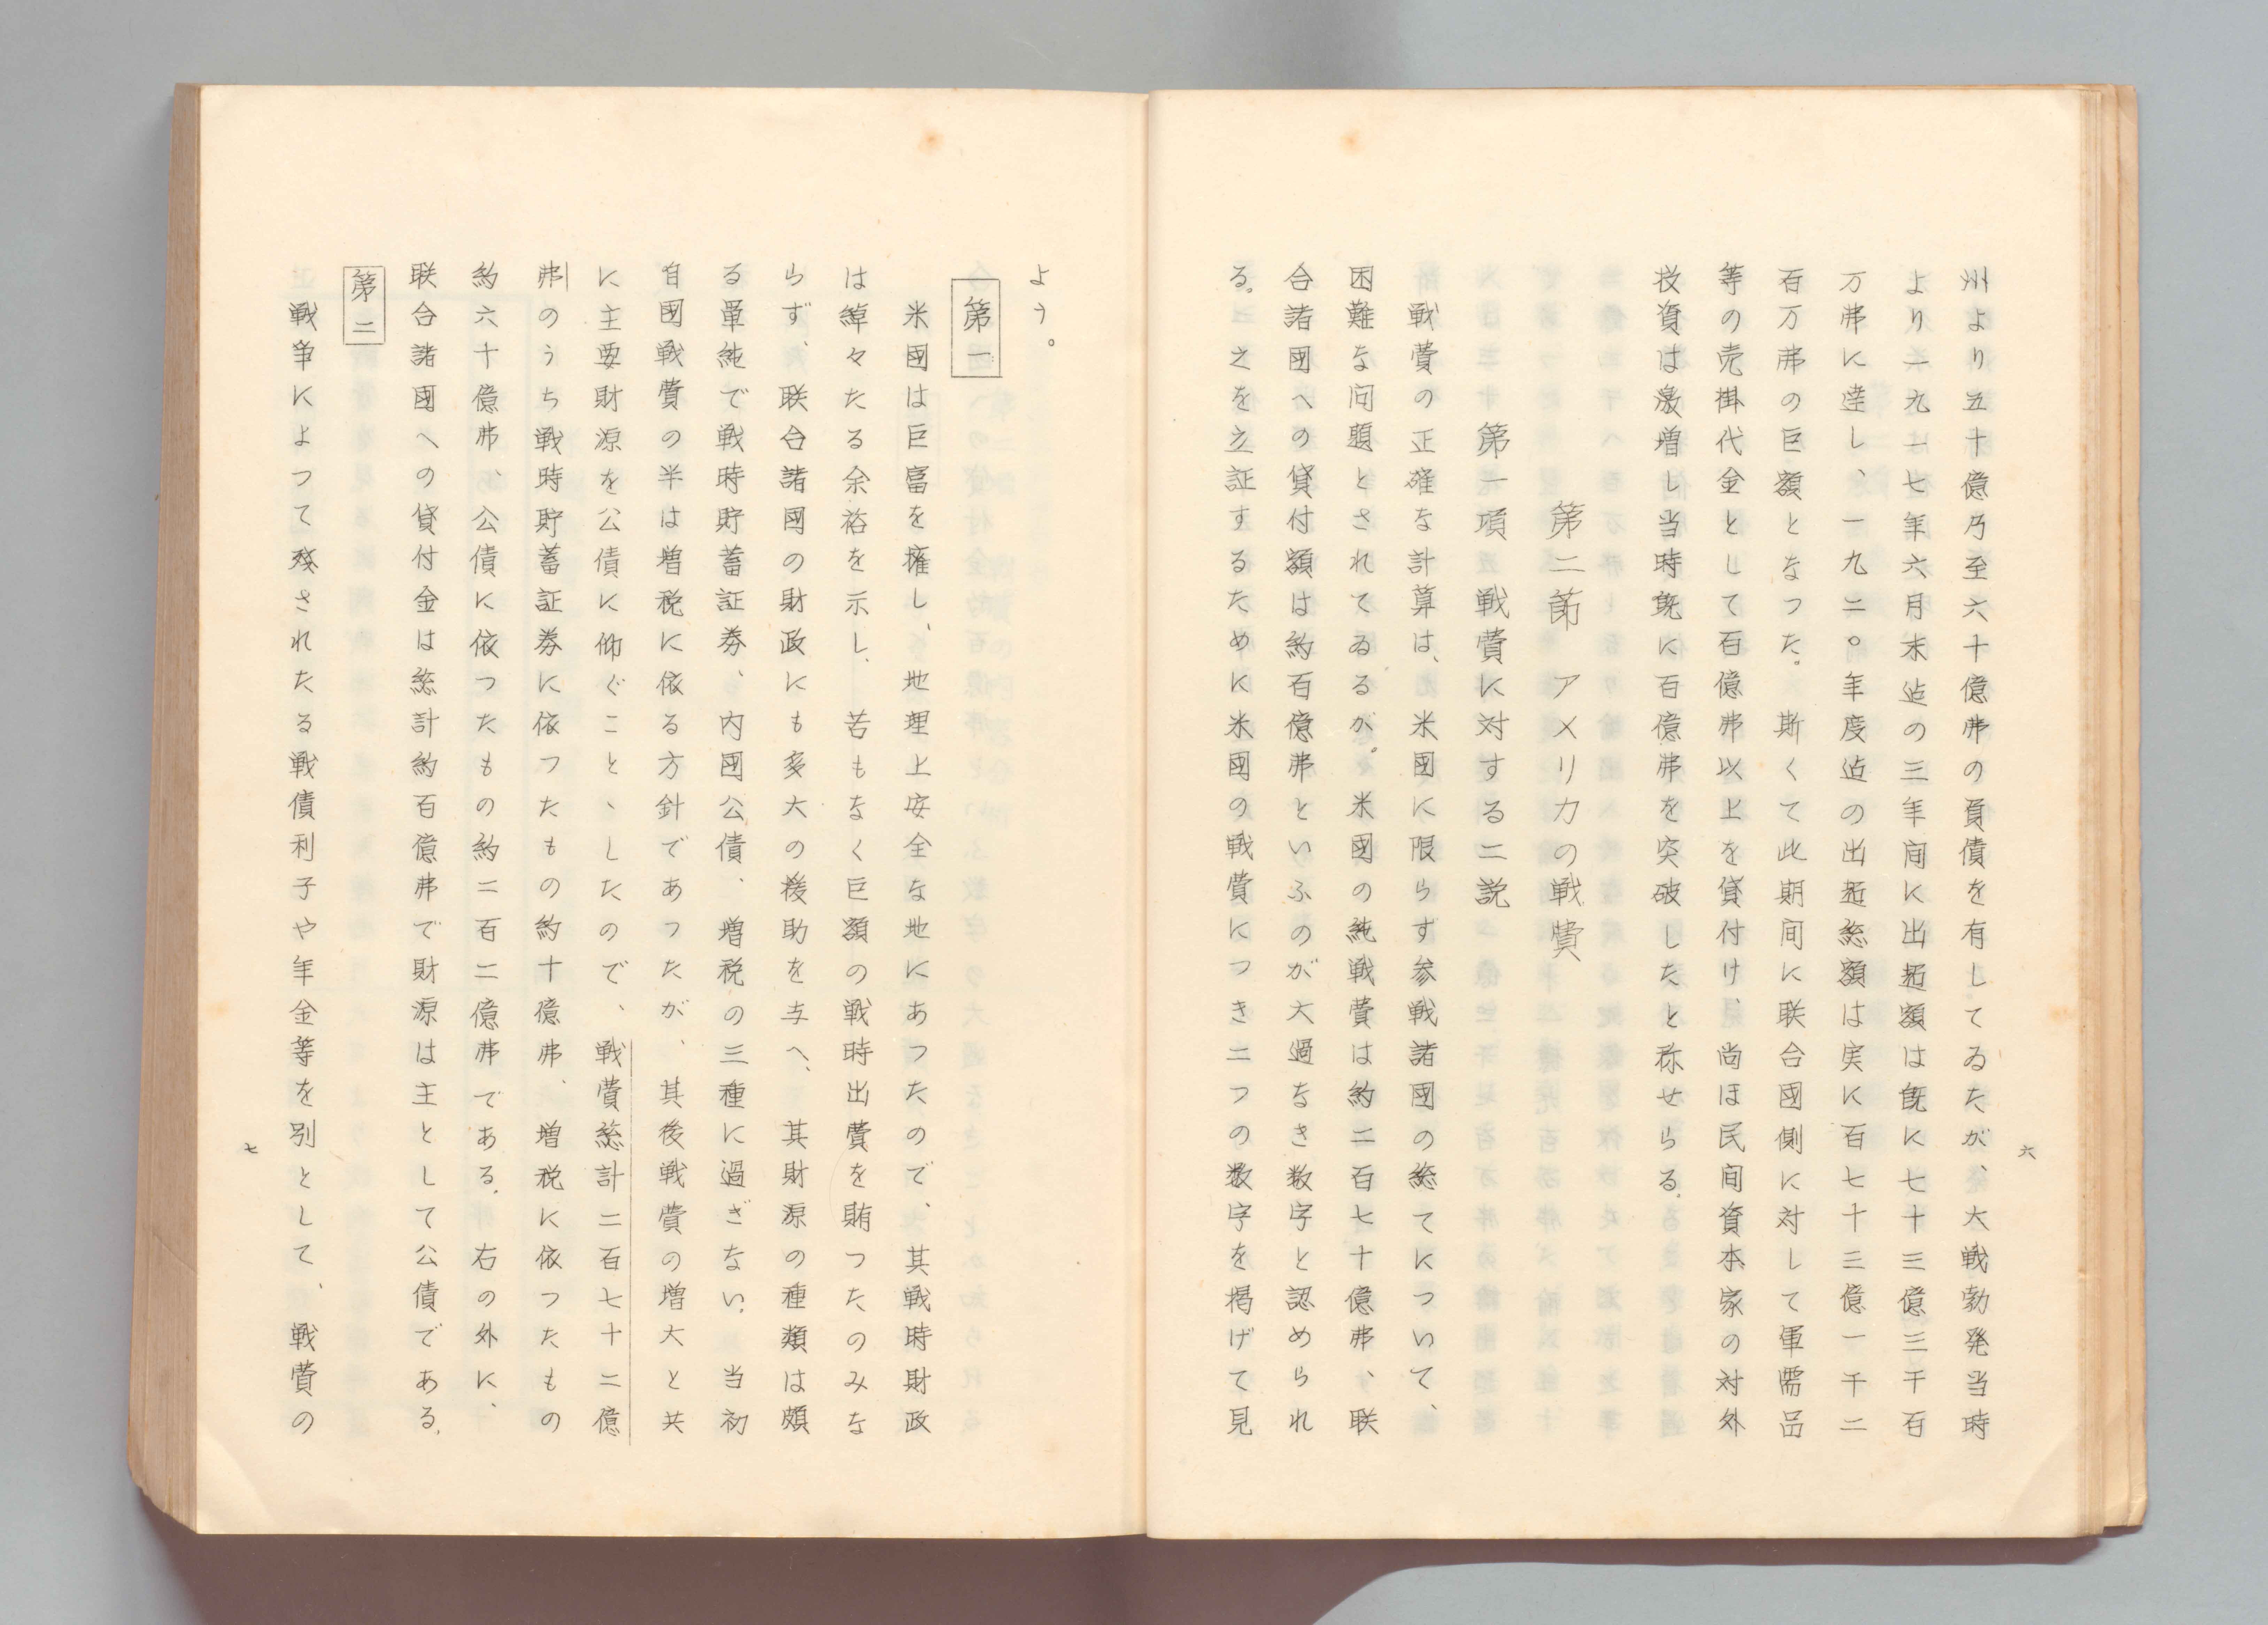 州より五十億乃至六十億弗の負債を有してゐたが、大戦勃発当時
より一九一七年六月末迠の三年间に出超額は既に七十三億三千百
万弗に達し、一九二〇年度迠の出超総額は実に百七十三億一千二
百万弗の巨額となつた。斯くて此期间に联合國側に対して軍需品
等の売掛代金として百億弗以上を貸付け、尚ほ民间資本家の対外
投資は激増し当時既に百億弗を突破したと称せらる。
第二節 アメリカの戦費
第一項 戦費に対する二説
戦費の正確な計算は、米國に限らず参戦諸國の総てについて、
困難な问題とされてゐるが。米國の純戦費は約二百七十億弗、联
合諸國への貸付額は約百億弗といふのが大過なき数字と認められ
る。之を立証するために米國の戦費につき二つの数字を掲げて見
六
よう。
第一
米國は巨富を擁し、地理上安全な地にあつたので、其戦時財政
は綽々たる余裕を示し、苦もなく巨額の戦時出費を賄つたのみな
らず、联合諸國の財政にも多大の援助を与へ、其財源の種類は頗
る單純で戦時貯蓄証券、内國公債、増税の三種に過ぎない。当初
自國戦費の半は増税に依る方針であつたが、其後戦費の増大と共
に主要財源を公債に仰ぐことゝしたので、戦費総計二百七十二億
弗のうち戦時貯蓄証券に依つたもの約十億弗、増税に依つたもの
約六十億弗、公債に依つたもの約二百二億弗である。右の外に、
联合諸國への貸付金は総計約百億弗で財源は主として公債である。
第二
戦争によつて残されたる戦債利子や年金等を別として、戦費の
七